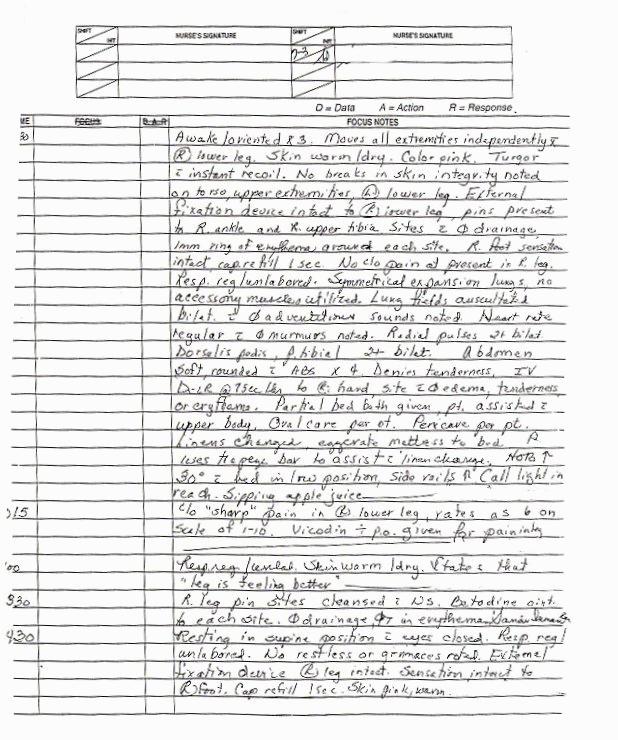 SHIFT INIT NURSE'S SIGNATURE SHIFT INIT NURSE'S SIGNATURE
D = Data A = Action R = Response
ME FOCUS D-A-R FOCUS NOTES
Awake/oriented x3. Moves all extremities independently c̄
Ⓡ lower leg. Skin warm/dry. Color pink. Turgor
c̄ instant recoil. No breaks in skin integrity noted
on torso, upper extremities, lower leg. External
fixation device intact to Ⓡ lower leg, pins present
to R. ankle and R. upper tibia. Sites c̄ Ø drainage,
1mm ring of erythema around each site. R. foot sensation
intact, cap refill 1 sec. No c/o pain at present in R. leg.
Resp. reg/unlabored. Symmetrical expansion lungs, no
accessory muscles utilized. Lung fields auscultated
bilat. c̄ Ø adventitious sounds noted. Heart rate
regular c̄ Ø murmurs noted. Radial pulses 2+ bilat.
Dorsalis pedis, p. tibial 2+ bilat. Abdomen
soft, rounded c̄ ABS x 4. Denies tenderness, IV
to hand site c̄ Ø edema, tenderness
or Partial bed bath given, pt. assisted c̄
upper body, Oral care per pt. Pericare per pt.
Linens changed mattress to bed.
uses bar to assist c̄ linen change. HOB ↑
30° c̄ bed in low position, side rails ↑ Call light in
reach. Sipping apple juice
015 c/o "sharp" pain in Ⓡ lower leg, rates as 6 on
scale of 1-10. Vicodin p.o. given for pain
00 Resp reg/unlab. Skin warm/dry. States that
"leg is feeling better"
330 R. leg pin sites cleansed c̄ NS. Betadine oint.
to each site. Ø drainage, in erythema.
430 Resting in supine position c̄ eyes closed. Resp. reg/
unlabored. No restless or grimaces noted. External
fixation device Ⓡ leg intact. Sensation intact to
Ⓡ foot. Cap refill 1 sec. Skin pink, warm.